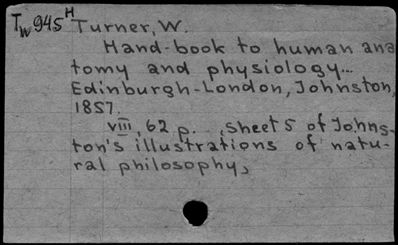 Tw945H Turner, W.
Hand-book to human ana
tomy and physiology...
Edinburgh-London, Johnston,
1857.
viii, 62 p. (Sheet 5 of Johns-
ton's illustrations of natu-
ral philosophy)